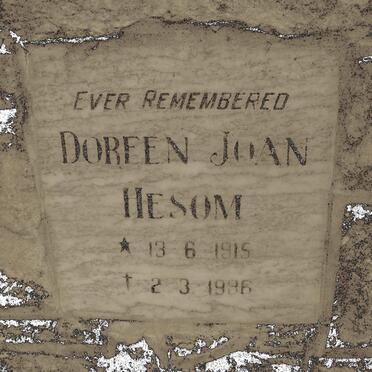 EVER REMEMBERED
DOREEN JOAN
HESOM
★ 13 6 1915
† 2 3 1996